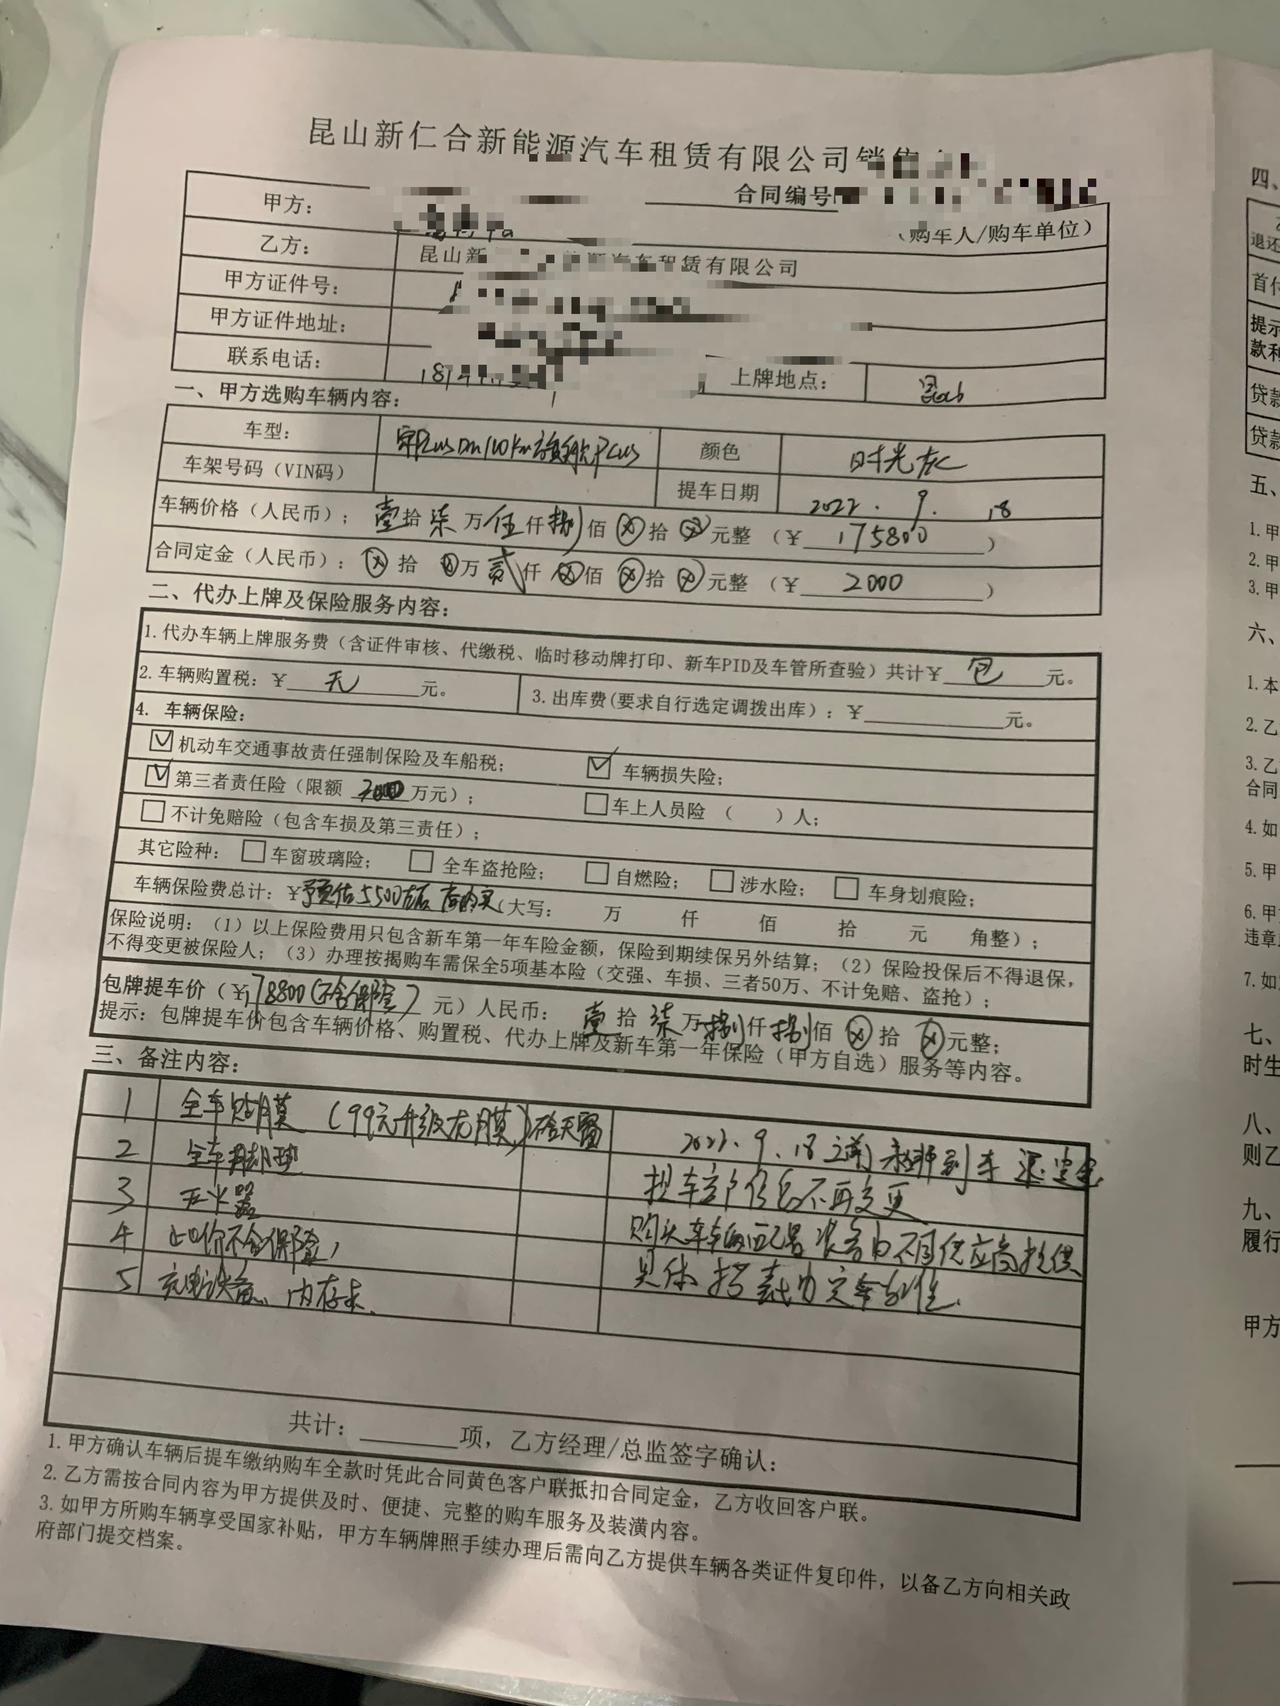 昆山新仁合新能源汽车租赁有限公司销售
合同编号
甲方：
（购车人/购车单位）
乙方： 昆山新 汽车租赁有限公司
甲方证件号：
甲方证件地址：
联系电话： 上牌地点：
一、甲方选购车辆内容：
车型： 宋PLUS Dm 110Km旗舰PLUS 颜色 时光灰
车架号码（VIN码） 提车日期 2022.9.18
车辆价格（人民币）；壹拾柒万伍仟捌佰⊗拾⊗元整（¥ 175800 ）
合同定金（人民币）：⊗拾⊗万贰仟⊗佰⊗拾⊗元整（¥ 2000 ）
二、代办上牌及保险服务内容：
1.代办车辆上牌服务费（含证件审核、代缴税、临时移动牌打印、新车PID及车管所查验）共计¥ 包 元。
2.车辆购置税：¥ 无 元。 3.出库费(要求自行选定调拨出库）：¥ 元。
4. 车辆保险：
☑机动车交通事故责任强制保险及车船税； ☑车辆损失险；
☑第三者责任险（限额 万元）； □车上人员险 （ ）人；
□不计免赔险（包含车损及第三责任）；
其它险种：□车窗玻璃险； □全车盗抢险； □自燃险； □涉水险； □车身划痕险；
车辆保险费总计：¥预估5500左右 （大写： 万 仟 佰 拾 元 角整）；
保险说明：（1）以上保险费用只包含新车第一年车险金额，保险到期续保另外结算；（2）保险投保后不得退保，
不得变更被保险人；（3）办理按揭购车需保全5项基本险（交强、车损、三者50万、不计免赔、盗抢）；
包牌提车价（¥178800（不含保险） 元）人民币： 壹拾柒万捌仟捌佰⊗拾⊗元整；
提示：包牌提车价包含车辆价格、购置税、代办上牌及新车第一年保险（甲方自选）服务等内容。
三、备注内容：
1 全车贴膜（99元升级龙膜）不含天窗 2022.9.18之前 未排到车 退定金
2 全车脚垫 提车客户信息不再变更
3 灭火器 购买车辆配置装备由不同供应商提供
4 此价不含保险， 具体搭载为完车为准.
5 充电设备、内存卡.
共计： 项，乙方经理/总监签字确认：
1.甲方确认车辆后提车缴纳购车全款时凭此合同黄色客户联抵扣合同定金，乙方收回客户联。
2.乙方需按合同内容为甲方提供及时、便捷、完整的购车服务及装潢内容。
3.如甲方所购车辆享受国家补贴，甲方车辆牌照手续办理后需向乙方提供车辆各类证件复印件，以备乙方向相关政
府部门提交档案。
四、
退还
首付
提示
款利
贷款
贷款
五、
1.甲
2.甲
3.甲
六、
1.本
2.乙
3.乙
合同
4.如
5.甲
6.甲
违章
7.如
七、
时生
八、
则乙
九、
履行
甲方